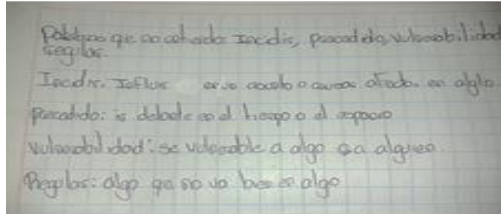 Palabras que no entiendo: Incidir, precedido, vulnerabilidad
regular.
Incidir: Influir en un asunto o causar efecto en algo
precedido: ir delante en el tiempo o el espacio
vulnerabilidad: se vulnerable a algo o a alguien
Regular: algo que no va bien en algo